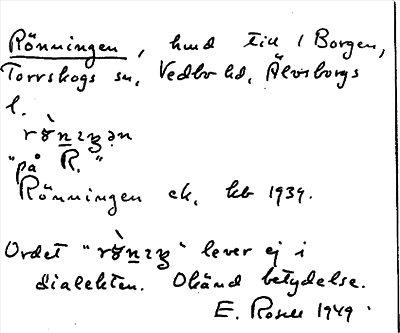 Rönningen, hmd till 1 Borgen,
Torrskogs sn, Vedbo hd, Älvsborgs
l.
"på R."
Rönningen ek. kb 1939.
Ordet " " lever ej i
dialekten. Okänd betydelse.
E. Rosell 1949.